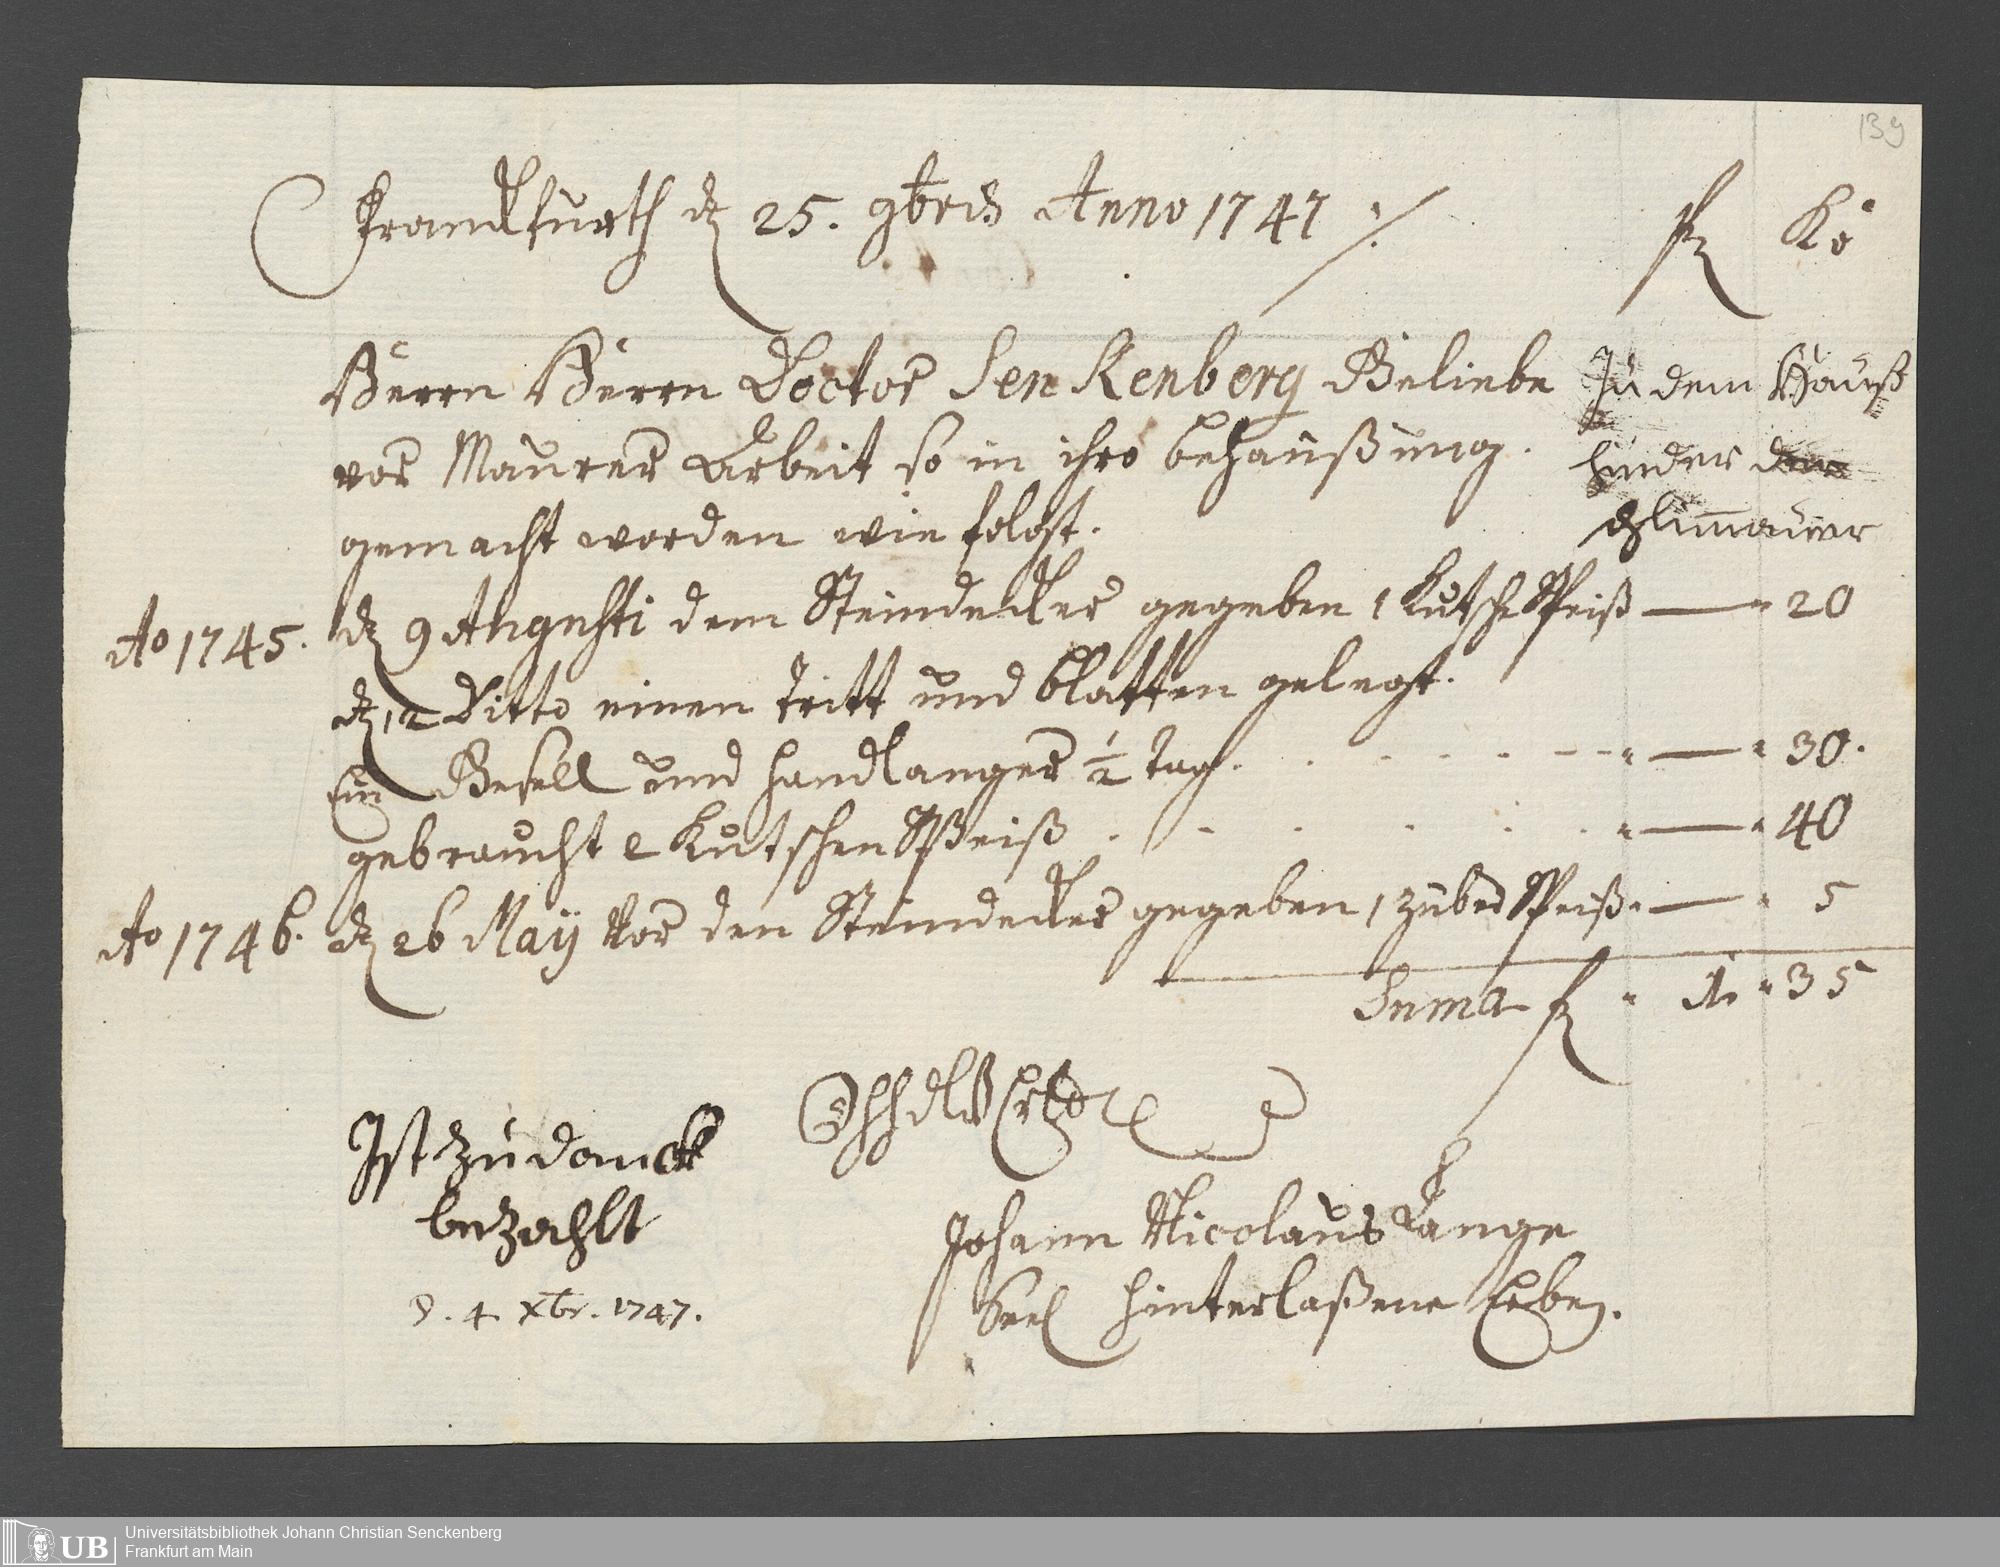 139
Franckfurth d 25. 9bris Anno 1747 ./. f Kr
Herrn Herrn Doctor Senkenberg Beliebe
vor Maurer Arbeit so in ihro behaußung.
gemacht worden wie folgt.
In dem Hauß
hinder der
schlimauer
Ao 1745. d 9 Augusti dem Steindecker gegeben 1 Kutsche Speiß — " 20
d 12 Ditto einen tritt und blatten gelegt.
Ein Gesell und handlanger ½ tag. " — " 30.
gebraucht 2 Kutschen Speiß " — " 40
Ao 1746. d 26 Maÿ Vor den Steindecker gegeben 1 zuber Speiß " — " 5
Suma f " 1 " 35
Johann Nicolaus Lange
Seel hinterlaßene Erben.
Ist zu danck
bezahlt
d. 4. Xbr. 1747.
UB Universitätsbibliothek Johann Christian Senckenberg
Frankfurt am Main